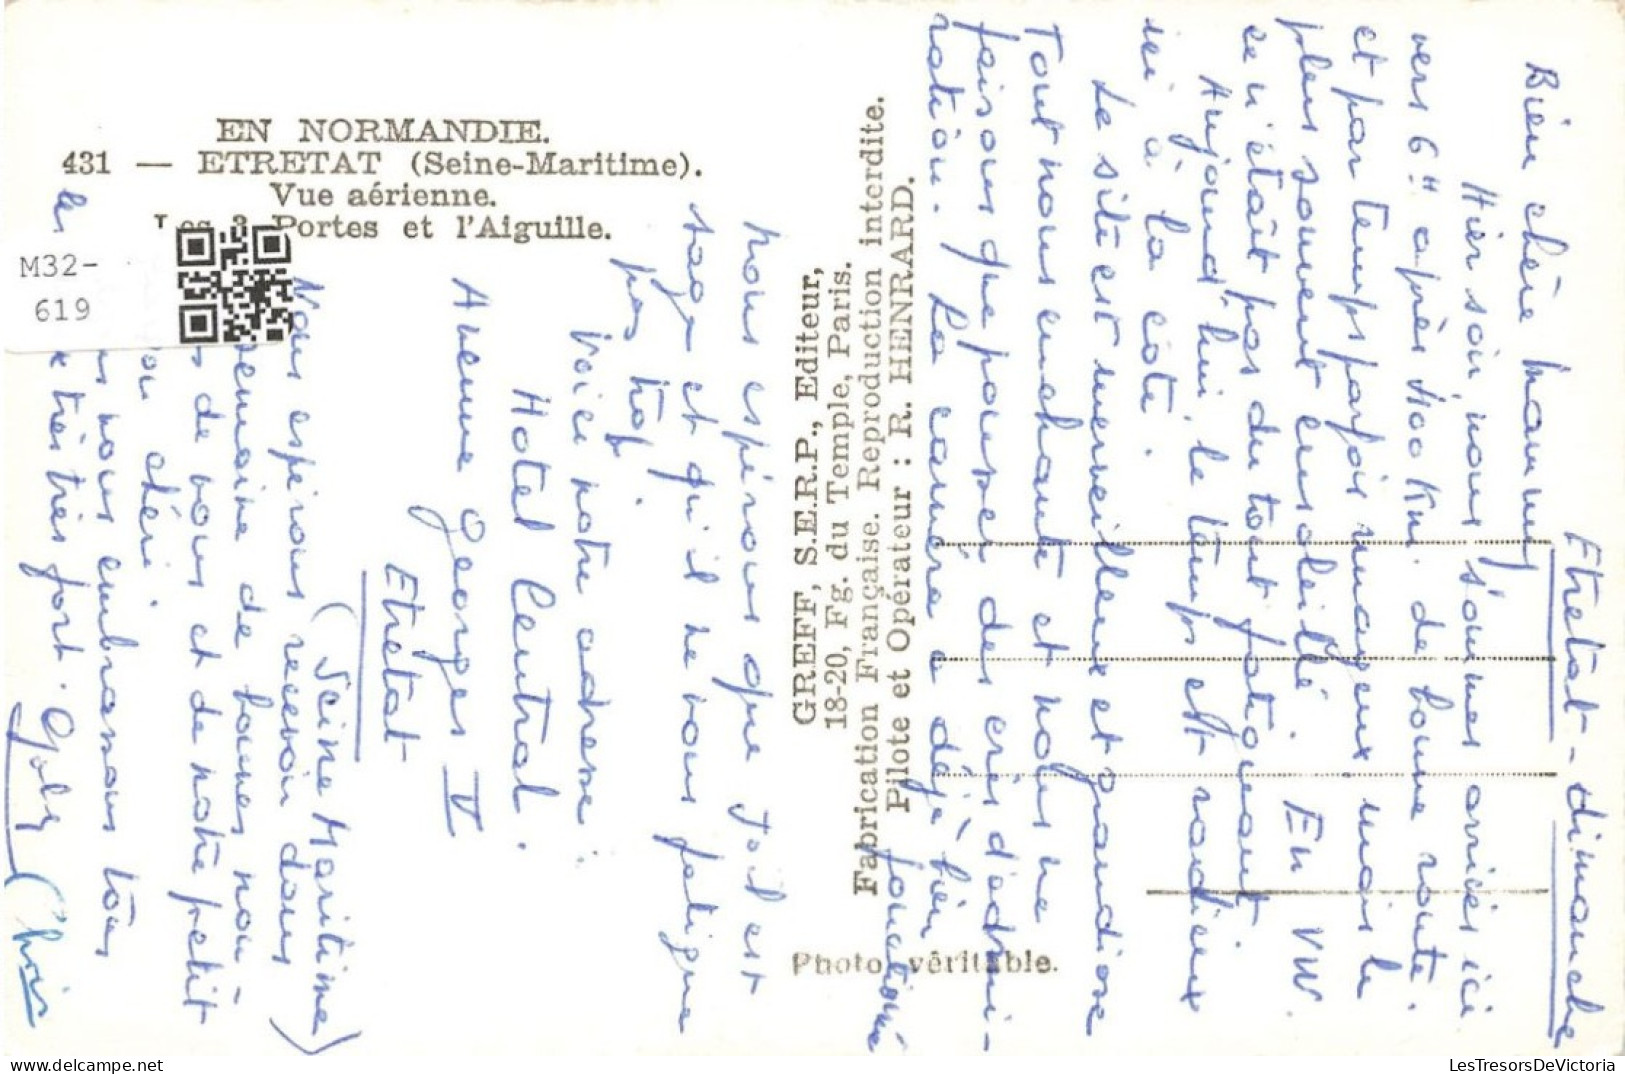 EN NORMANDIE.
431 — ETRETAT (Seine-Maritime).
Vue aérienne.
Portes et l'Aiguille.
M32-
619
GREFF, S.E.R.P., Editeur,
18-20, Fg. du Temple, Paris.
Fabrication Française. Reproduction interdite.
Pilote et Opérateur : R. HENRARD.
Photo véritable.
Etretat - dimanche
Bien chère mammy
Hier soir, nous sommes arrivés ici
vers 6H après 400 Km. de bonne route.
et par temps parfois nuageux mais le
plus souvent ensoleillé. En VW.
ce n'était pas du tout fatiguant
Aujourd'hui, le temps est radieux
ici à la côte.
Le site est merveilleux et grandiose
Tout nous enchante et nous ne
faisons que pousser des cris d'admi-
ration. La caméra a déjà bien fonctionné
Nous espérons que Joël est
sage et qu'il ne vous fatigue
pas trop.
Voici notre adresse :
Hotel Central.
Avenue Georges V
Etretat
(Seine Maritime)
Nous espérons recevoir dans
semaine de bonnes nou-
de vous et de notre petit
chéri
nous embrassons tous
les
très très fort. Gaby
Chris
LesTresorsDeVictoria